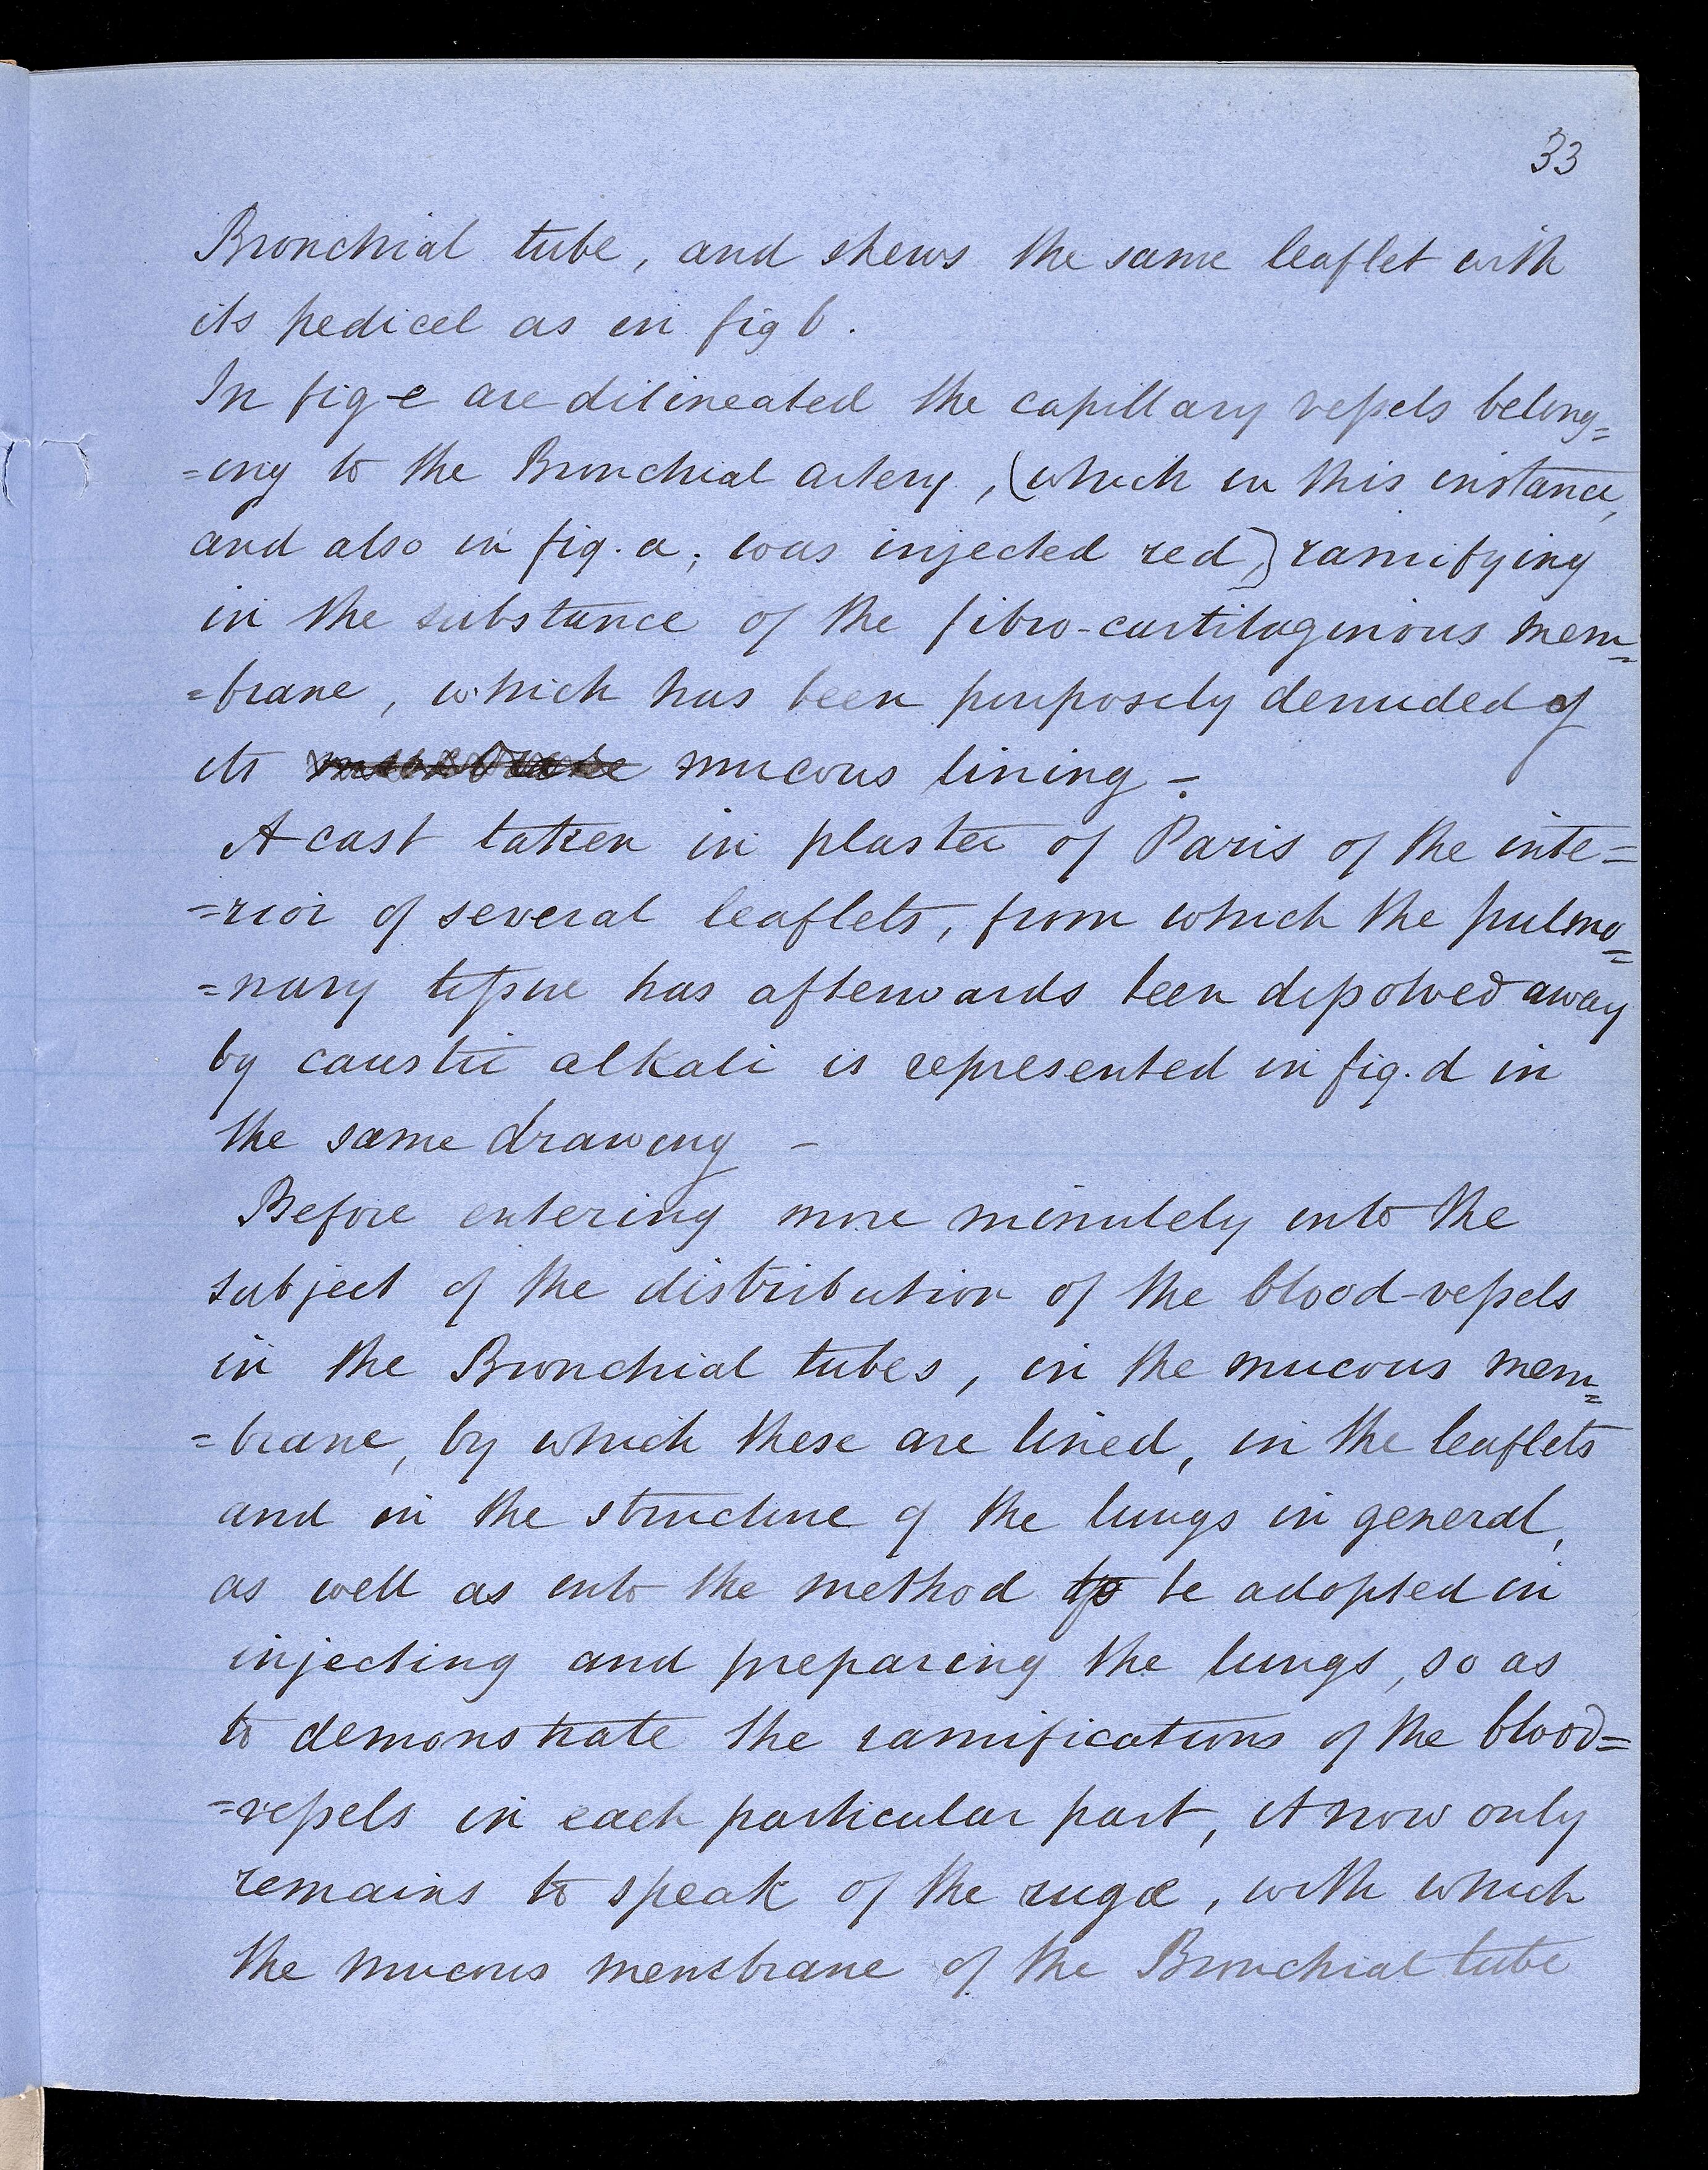 33
Bronchial tube, and shews the same leaflet with
its pedicel as in fig b.
In fig-e are dilineated the capillary vessels belong=
=ing to the Bronchial artery, (which in this instance,
and also in fig. a; was injected red,) ramifying
in the substance of the fibro-cartilaginous mem=
=brane, which has been purposely denuded of
its membrane mucous lining -
A cast taken in plaster of Paris of the inte=
=rior of several leaflets, from which the pulmo=
=nary tissue has afterwards been dissolved away
by caustic alkali is represented in fig. d in
the same drawing -
Before entering more minutely into the
subject of the distribution of the blood-vessels
in the Bronchial tubes, in the mucous mem=
=brane, by which these are lined, in the leaflets
and in the structure of the lungs in general,
as well as into the method to be adopted in
injecting and preparing the lungs, so as
to demonstrate the ramifications of the blood=
=vessels in each particular part, it now only
remains to speak of the rugæ, with which
the mucous membrane of the Bronchial tube